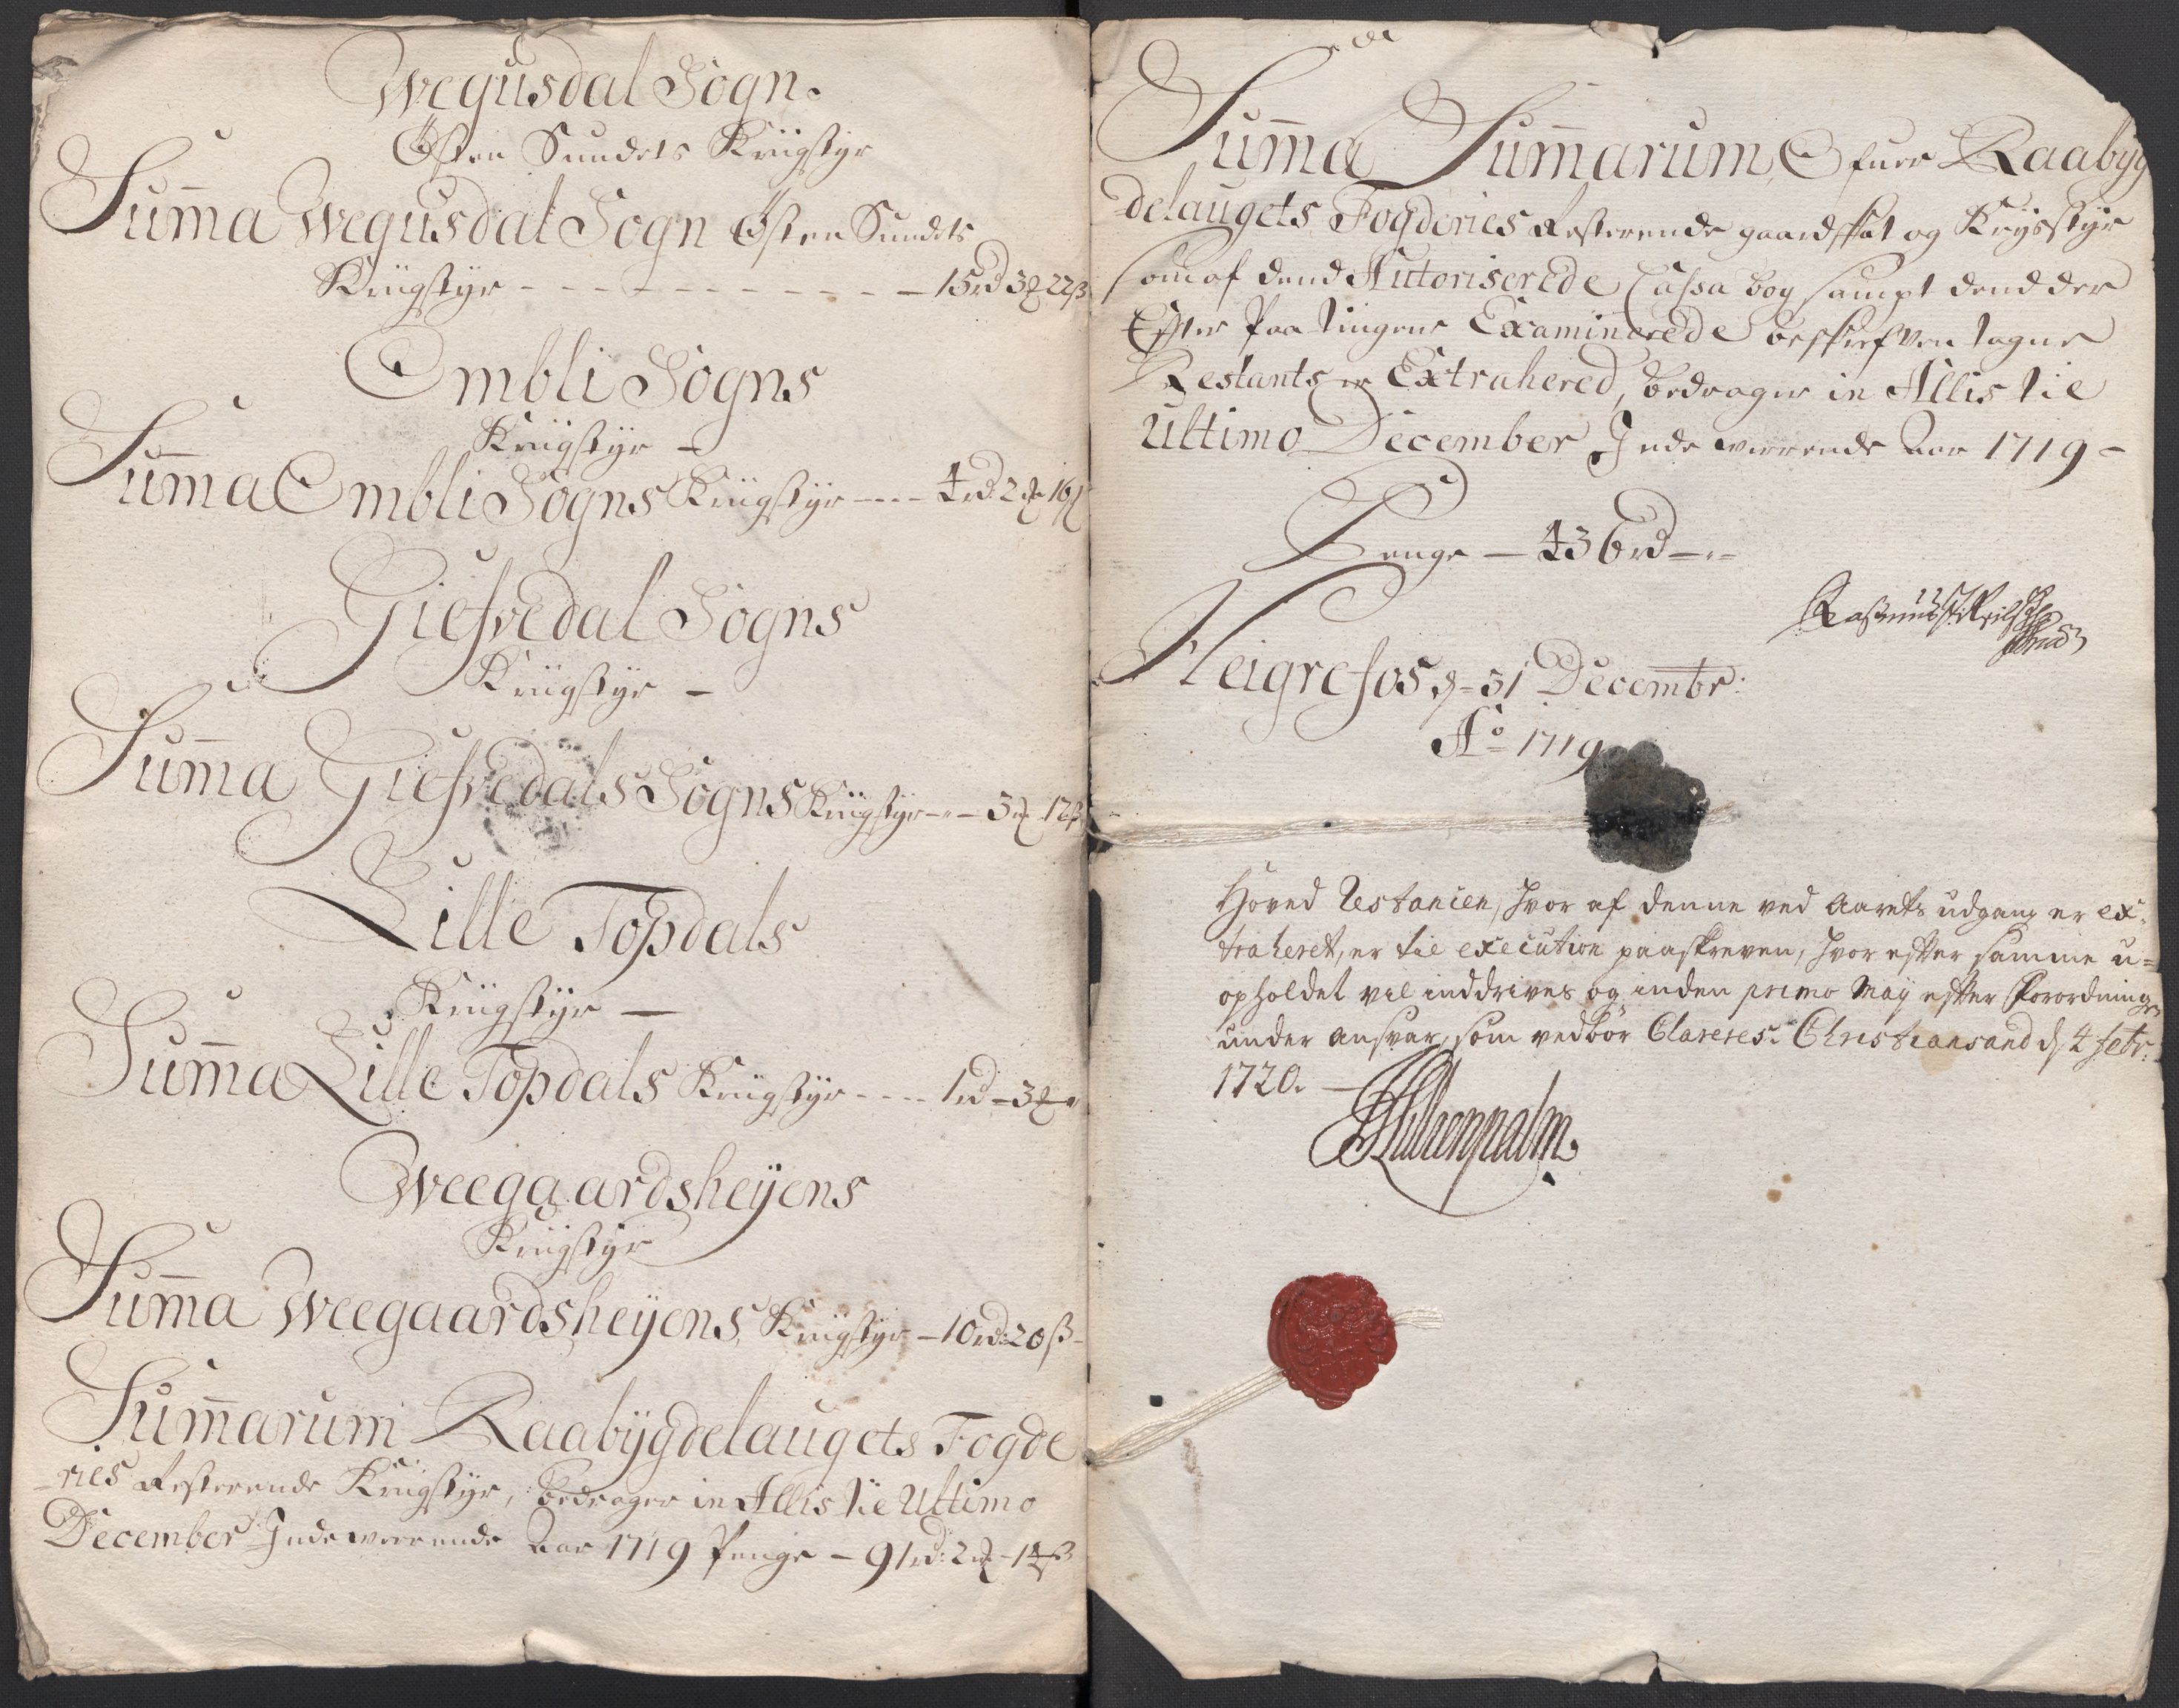 Wegusdal Sogn.
Östen Sundets Krigstyr
Summa Wegusdal Sogn Östen Sundets
Krigstyr - - - - - - - - - - - 15rd 3 22ß
Embli Sogns
Krigstyr -
Summa Embli Sogns Krigstyr - - - 4rd: 2 16ß
Giefvedal Sogns
Krigstyr -
Summa Giefvedals Sogns Krigstyr - - 3 12ß
Lille Topdals
Krigstyr -
Summa Lille Topdals Krigstyr - - - - 1rd - 3
Weegaardsheijens
Krigstyr
Summa Weegaardsheijens Krigstyr - 10rd: 20ß -
Summarum Raabijgdelaugets Fogde
ries Resterende Krigstyr, bedrager in Allis til Ultimo
December Indeværende Aar 1719 Penge - 91rd: 2 - 14ß
Summa Summarum Ofver Raabijg
delaugets Fogderies Resterende gaardskat og Krijsstyr
som af dend Autoriserede Cassa bog sampt dend der
Efter Paa tingene Examinerede beskrefven tagne
Restants er Extrahered, bedrager in Allis til
Ultimo December Indeværende Aar 1719 -
Penge - 436rd - -
Heigrefos d= 31 Decembr:
Ao 1719
Hoved Restancen, hvor af denne ved Aarets udgang er ex-
traheret, er til execution paaskreven, hvor efter samme u=
opholdet vil inddrives og inden primo Maij efter Forordningen
under ansvar, som vedbör Clareres. Christiansand d 4 febr:
1720. -